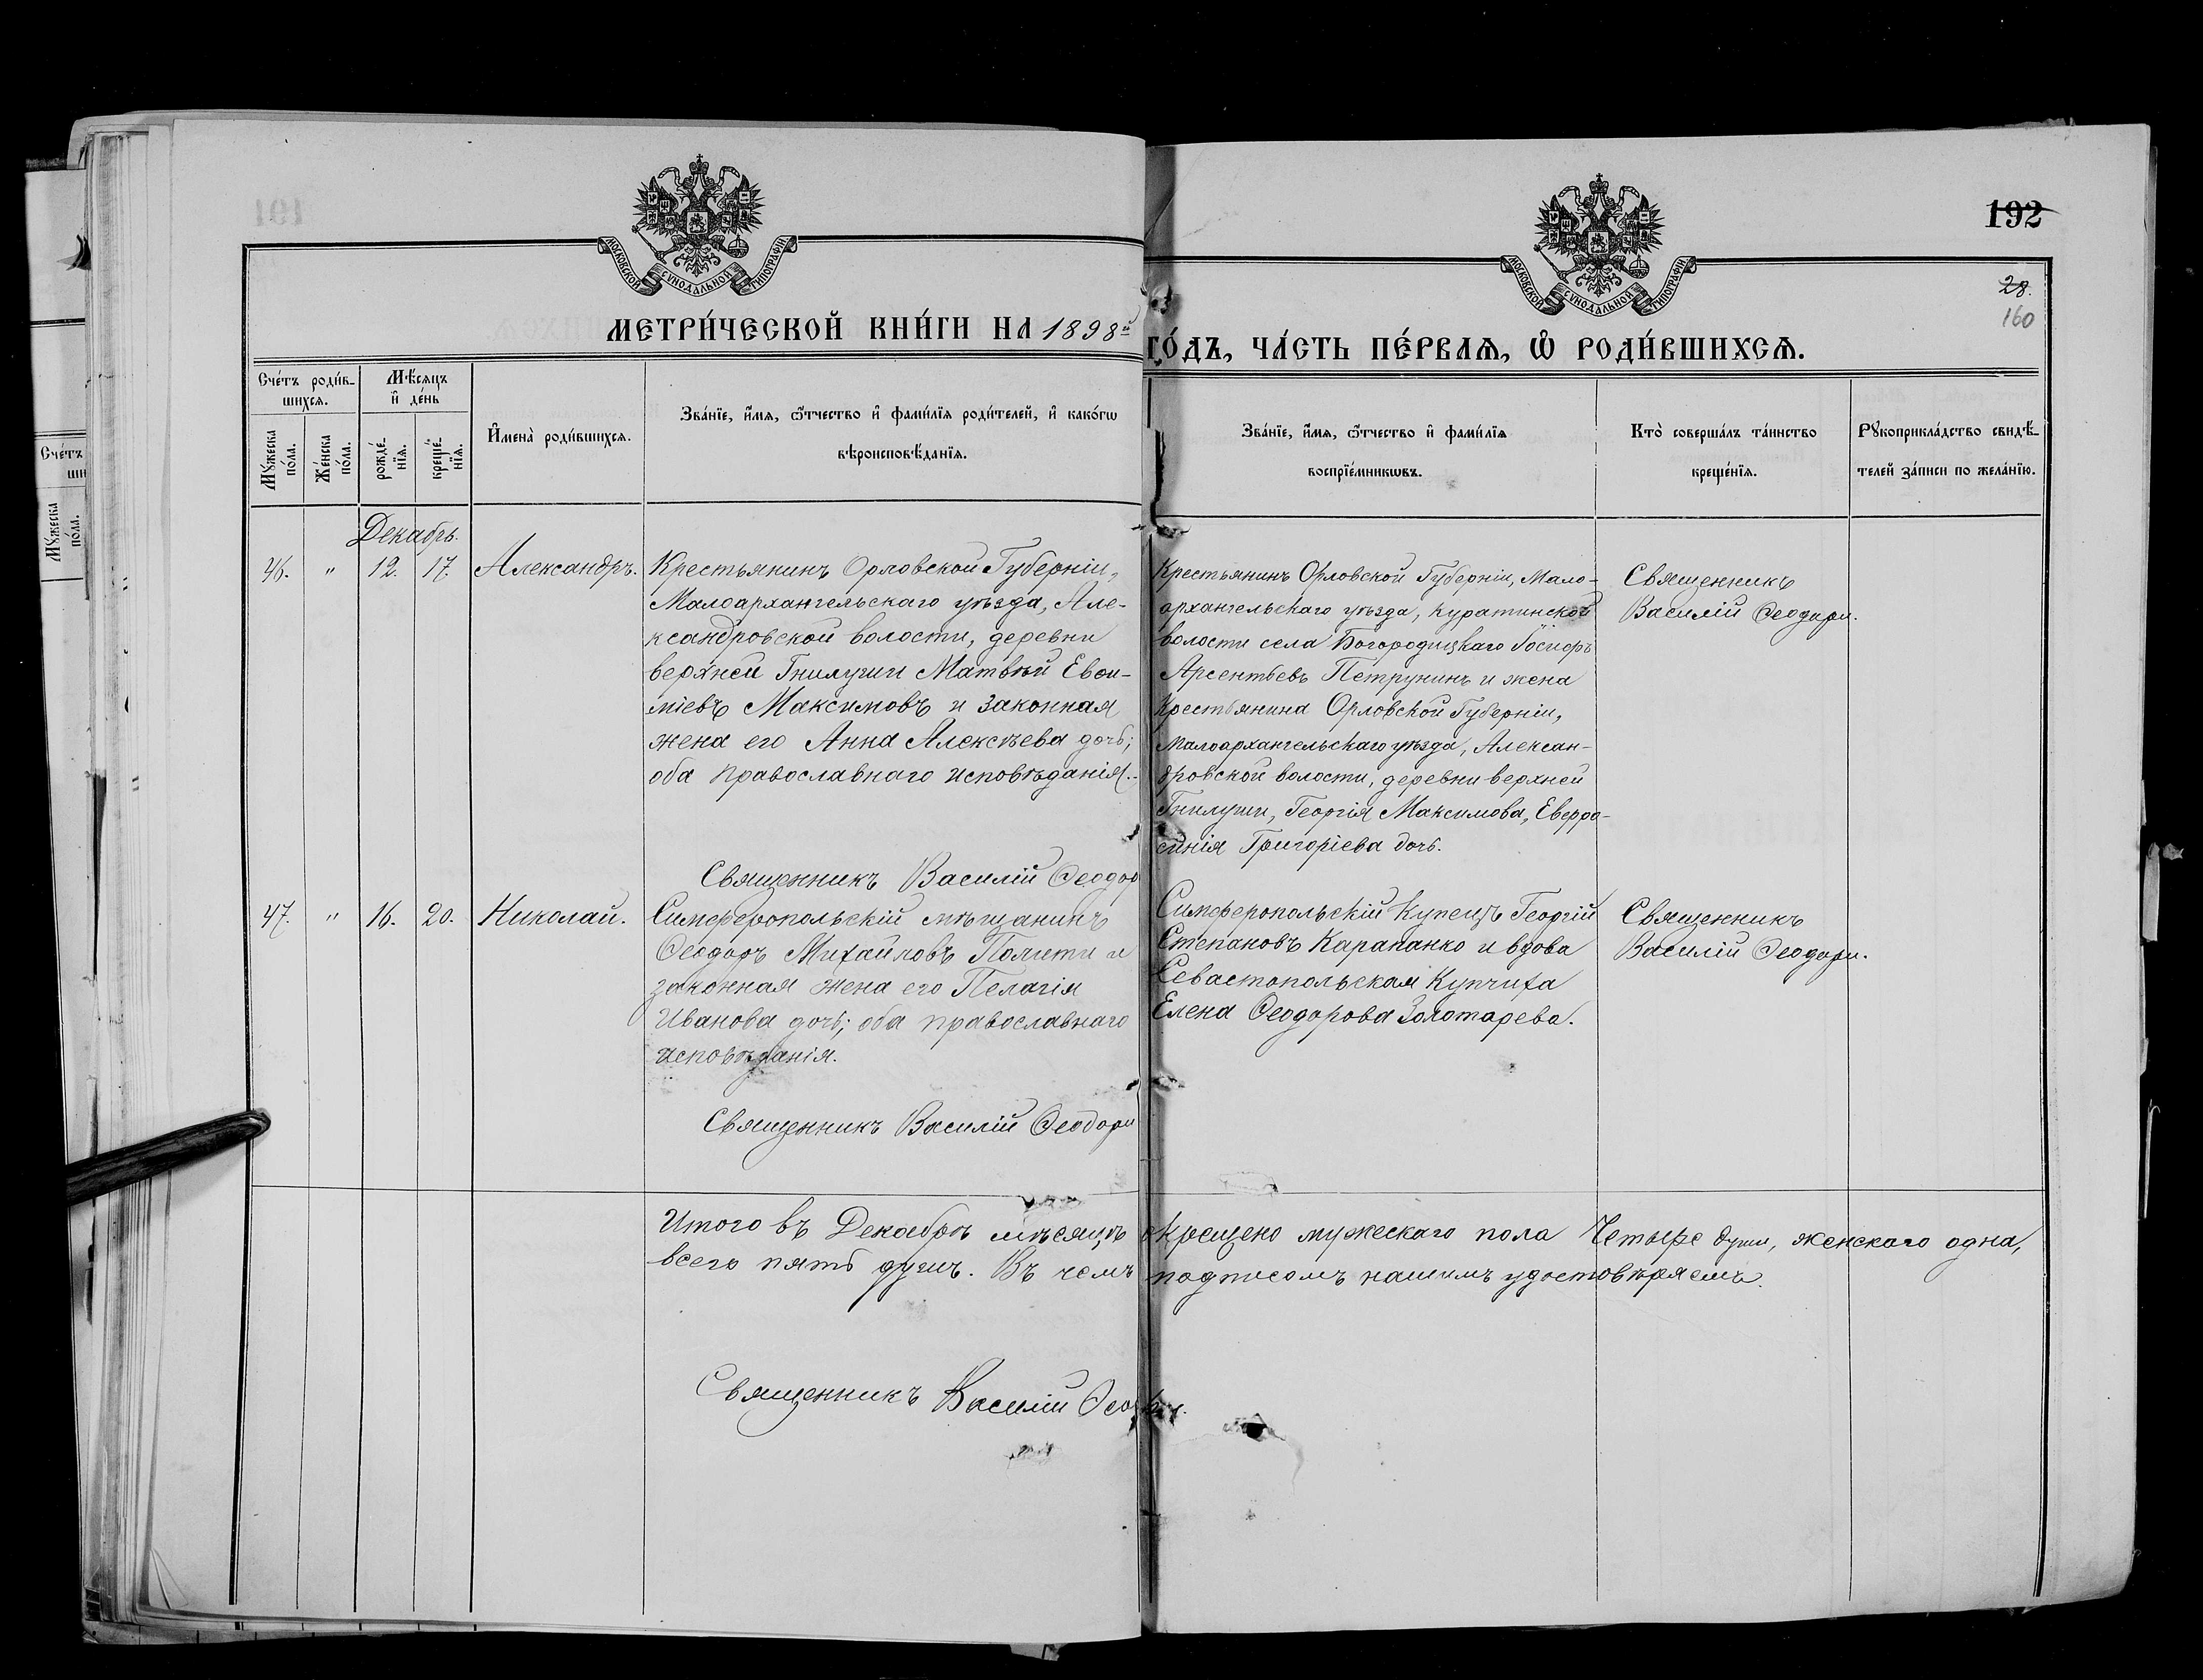 192
28.
160
МОСКОВСКОЙ СУНОДАЛЬНОЙ ТИПОГРАФІИ
МОСКОВСКОЙ СУНОДАЛЬНОЙ ТИПОГРАФІИ
МЕТРИ́ЧЕСКОЙ КНИ́ГИ НА 1898й
ГО́ДЪ, ЧА́СТЬ ПЕ́РВАѦ, Ѡ РОДИ́ВШИХСѦ.
Сче́тъ роди́в-
шихсѧ.
Мѣ́сѧцъ
и҆ де́нь
Мꙋ́жеска
по́ла.
Же́нска
по́ла.
рожде́-
нїѧ.
креще́-
нїѧ.
И҆мена̀ роди́вшихсѧ.
Зва́нїе, и҆́мѧ, ѻ҆́тчество и҆ фами́лїѧ роди́телей, и҆ како́гѡ
вѣроисповѣ́данїѧ.
Зва́нїе, и҆́мѧ, ѻ҆́тчество и҆ фами́лїѧ
воспрїе́мникѡвъ.
Кто̀ соверша́лъ та́инство
креще́нїѧ.
Рꙋкоприкла́дство свидѣ́-
телей за́писи по жела́нїю.
Декабрь.
46. " 12. 17. Александръ.
Крестьянинъ Орловской Губерніи,
Малоархангельскаго уѣзда, Але-
ксандровской волости, деревни
верхней Гнилуши Матвѣй Евѳи-
міевъ Максимовъ и законная
жена его Анна Алексѣева дочь;
оба православнаго исповѣданія.
Священникъ Василій Ѳеодор
Крестьянинъ Орловской Губерніи, Мало-
архангельскаго уѣзда, Куратинской
волости села Богородицкаго
Арсентьевъ Петрунинъ и жена
Крестьянина Орловской Губерніи,
Малоархангельскаго уѣзда, Алексан-
дровской волости, деревни верхней
Гнилуши, Георгія Максимова, Евфро-
синія Григоріева дочь.
Священникъ
Василій Ѳеодори.
47. " 16. 20. Николай.
Симферопольскій мѣщанинъ
Ѳеодоръ Михайловъ Полити и
законная жена его Пелагія
Иванова дочь; оба православнаго
исповѣданія.
Священникъ Василій Ѳеодори
Симферопольскій Купецъ Георгій
Степановъ Карапанко и вдова
Севастопольская Купчиха
Елена Ѳеодорова Золотарева.
Священникъ
Василій Ѳеодори.
Итого въ Декабрѣ мѣсяцѣ окрещено мужескаго пола Четыре души, женскаго одна,
всего пять душъ. Въ чемъ подписомъ нашимъ удостовѣряемъ.
Священникъ Василій Ѳеодори.